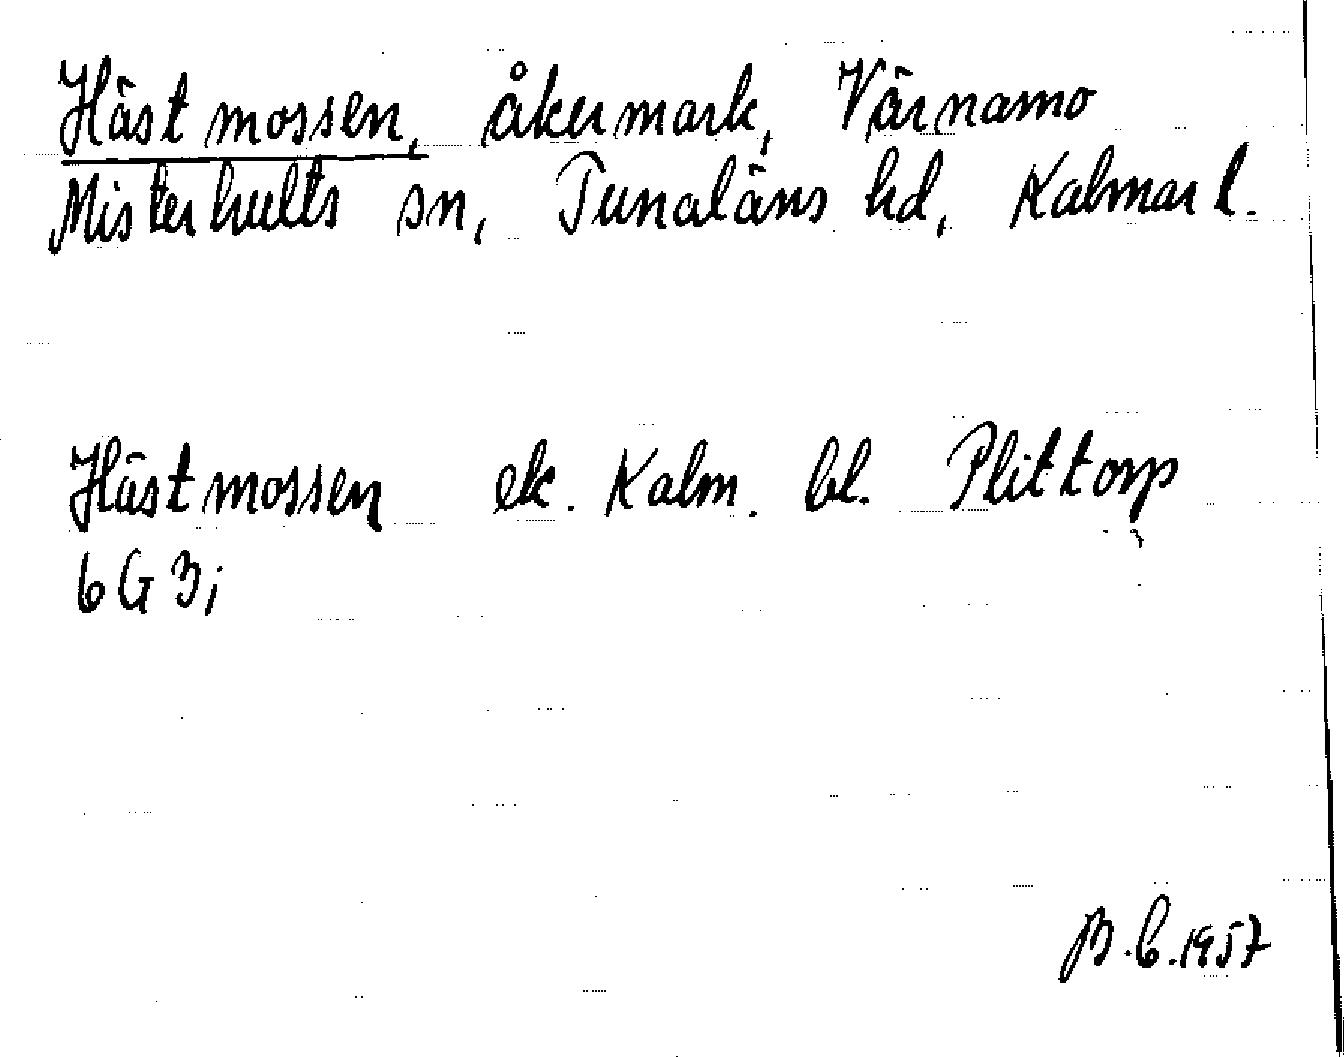 Hästmossen, åkermark, Värnamo
Misterhults sn, Tunaläns hd, Kalmar l.
Hästmossen ek. Kalm. bl. Plittorp
6G3j
B.C.1957